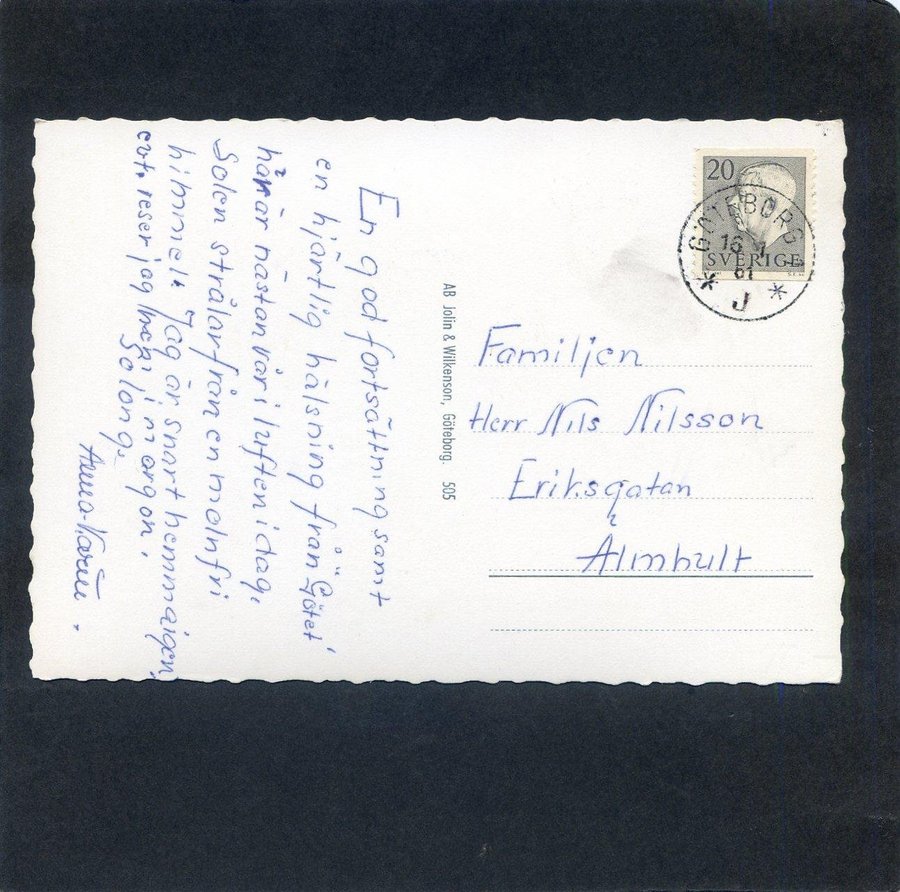 En god fortsättning samt
en hjärtlig hälsning från "Götet"
här är nästan vår i luften idag.
Solen strålar från en molnfri
himmel. Jag är snart hemma igen,
evt. reser jag hem i morgon.
Solong.
Anna-Karin.
AB Jolin & Wilkenson, Göteborg. 505
20
SVERIGE
GÖTEBORG
16 1
61
* J *
Familjen
Herr Nils Nilsson
Eriksgatan
Älmhult